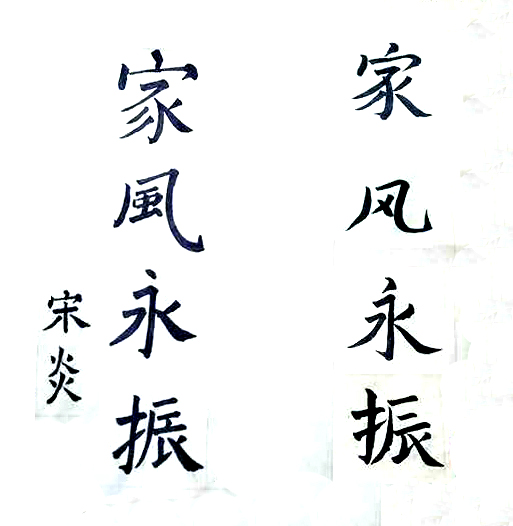 家风永振
家風永振
宋炎